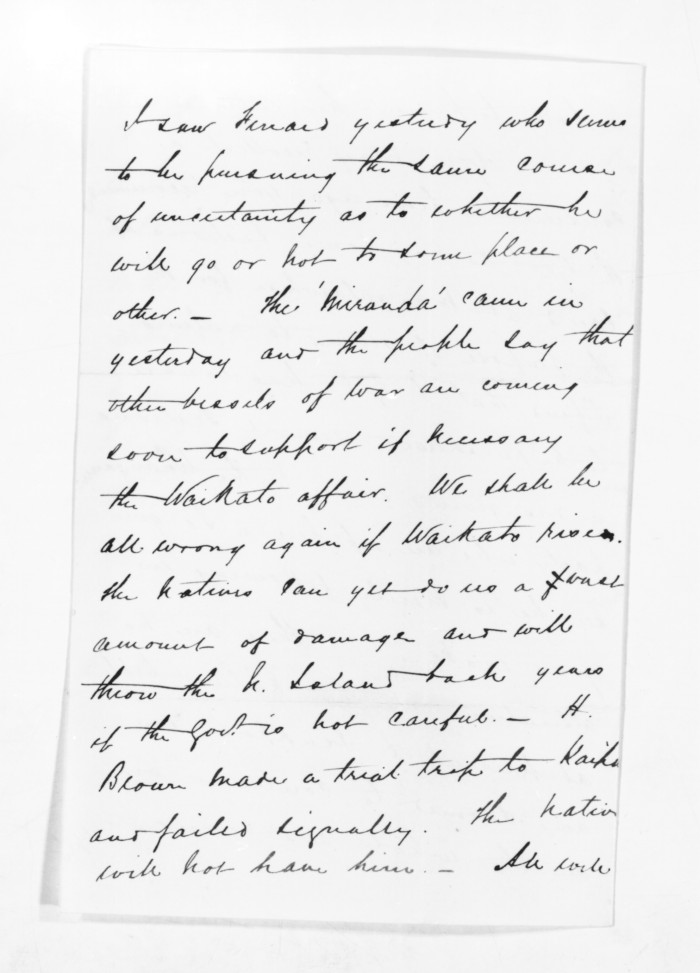 I saw Fenard yesterdy who seems
to be pursuing the same course
of uncertainty as to whether he
will go or not to some place or
other. — The 'Miranda' came in
yesterday and the people say that
other vessels of war are coming
soon to support if necessary
the Waikato affair. We shall be
all wrong again if Waikato rises.
The Natives can yet do us a vast
amount of damage and will
throw the N. Island back years
if the Govt. is not careful. — H.
Brown made a trial trip to
and failed signally. The Native
will not have him. — He will